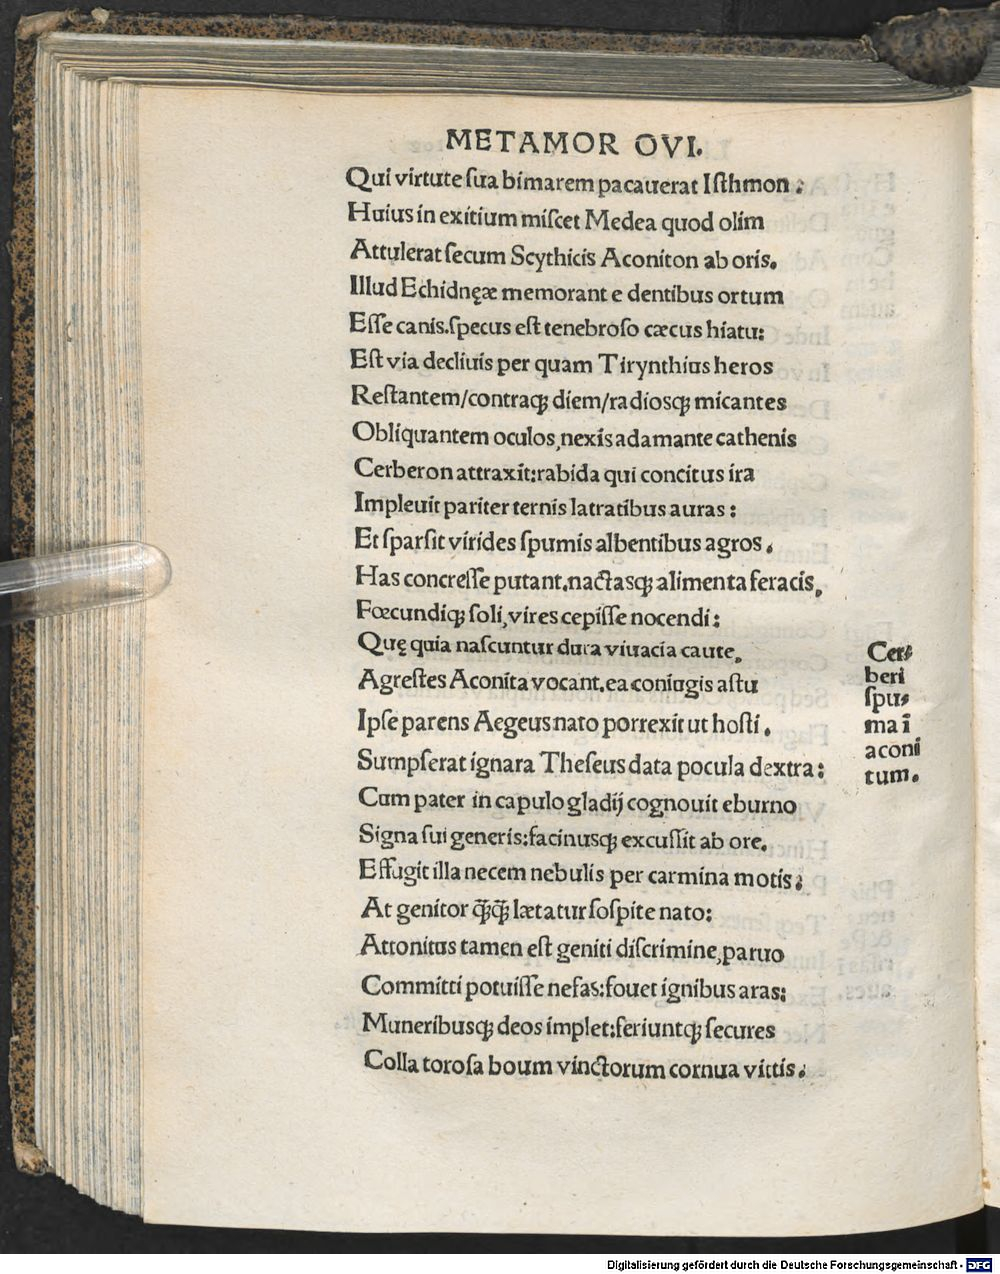 METAMOR OVI.
Qui virtute ſua bimarem pacauerat Iſthmon:
Huius in exitium miſcet Medea quod olim
Attulerat ſecum Scythicis Aconiton ab oris.
Illud Echidnęæ memorant e dentibus ortum
Eſſe canis.ſpecus eſt tenebroſo cæcus hiatu:
Eſt via decliuis per quam Tirynthius heros
Reſtantem/contraqꝫ diem/radiosqꝫ micantes
Obliquantem oculos,nexis adamante cathenis
Cerberon attraxit:rabida qui concitus ira
Impleuit pariter ternis latratibus auras:
Et ſparſit virides ſpumis albentibus agros.
Has concreſſe putant.nactasqꝫ alimenta feracis,
Fœcundiqꝫ ſoli,vires cepiſſe nocendi:
Quę quia naſcuntur dura viuacia caute,
Agreſtes Aconita vocant.ea coniugis aſtu
Ipſe parens Aegeus nato porrexit ut hoſti.
Sumpſerat ignara Theſeus data pocula dextra:
Cum pater in capulo gladij cognouit eburno
Signa ſui generis:facinusqꝫ excuſſit ab ore.
Effugit illa necem nebulis per carmina motis:
At genitor q̄̃q̄̃ lætatur ſoſpite nato:
Attonitus tamen eſt geniti diſcrimine,paruo
Committi potuiſſe nefas:fouet ignibus aras:
Muneribusqꝫ deos implet:feriuntqꝫ ſecures
Colla toroſa boum vinctorum cornua vittis.
Cer⸗
beri
ſpu⸗
ma ī
aconi
tum.
Digitalisierung gefördert durch die Deutsche Forschungsgemeinschaft - DFG